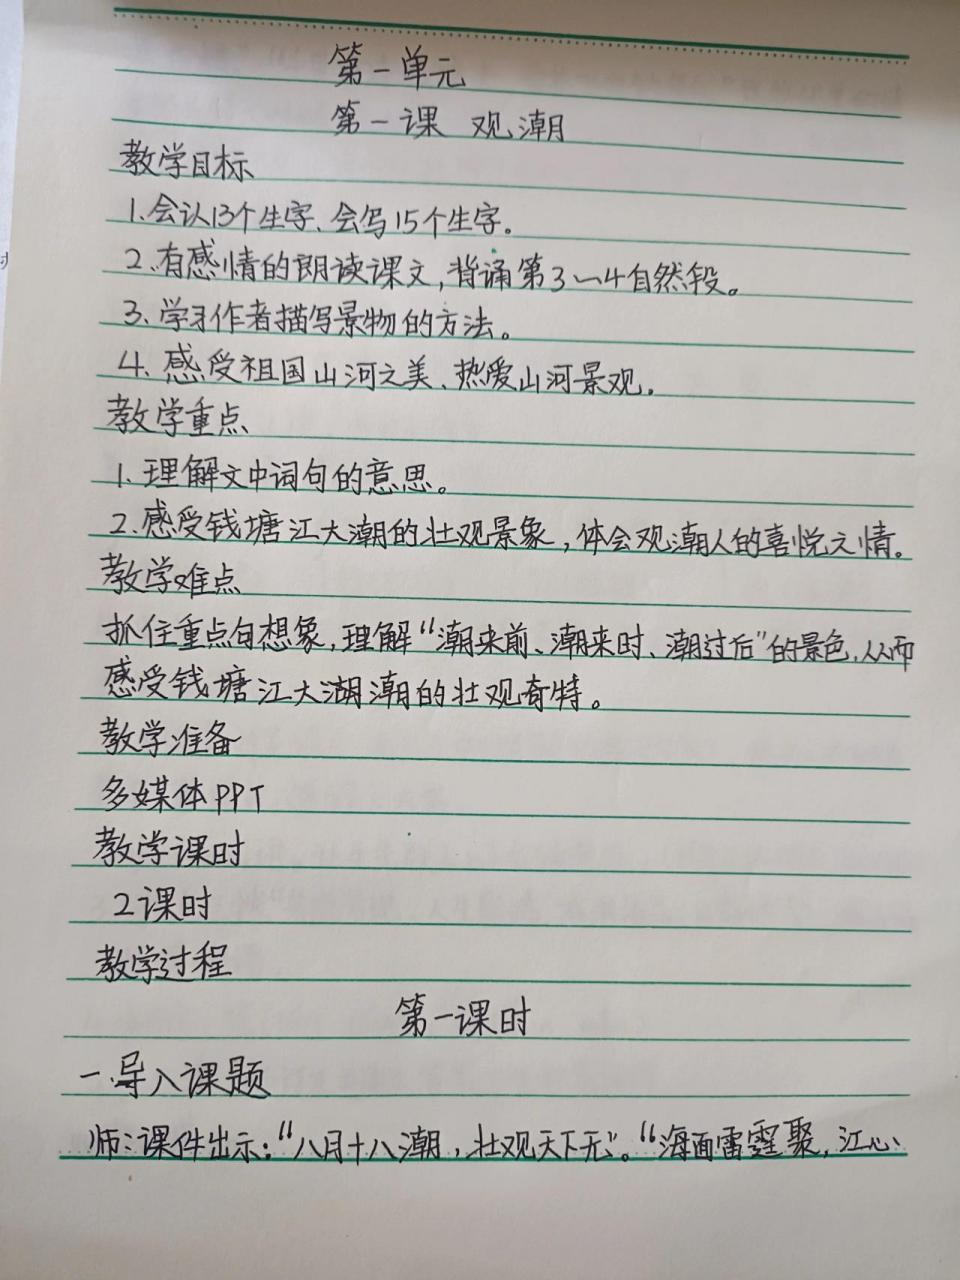 第一单元
第一课 观潮
教学目标
1.会认13个生字、会写15个生字。
2.有感情的朗读课文,背诵第3—4自然段。
3、学习作者描写景物的方法。
4、感受祖国山河之美、热爱山河景观。
教学重点
1、理解文中词句的意思。
2.感受钱塘江大潮的壮观景象,体会观潮人的喜悦之情。
教学难点
抓住重点句想象,理解“潮来前、潮来时、潮过后”的景色,从而
感受钱塘江大湖潮的壮观奇特。
教学准备
多媒体PPT
教学课时
2课时
教学过程
第一课时
一、导入课题
师:课件出示:“八月十八潮,壮观天下无”。“海面雷霆聚,江心